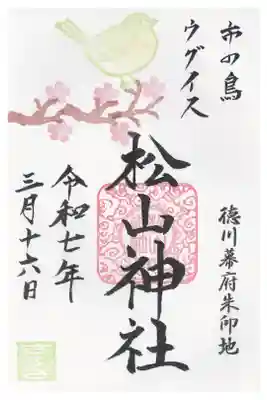 市の鳥
ウグイス
徳川幕府朱印地
松山神社
令和七年
三月十六日